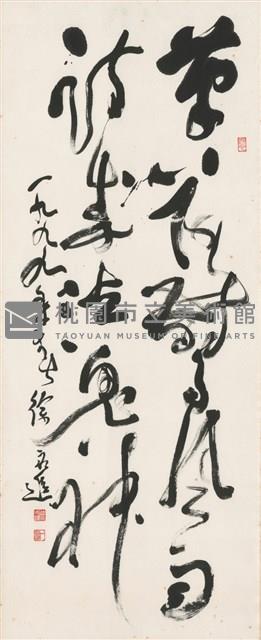 筆落驚風雨
詩成泣鬼神
一九九九年 徐永進
桃園市立美術館
TAOYUAN MUSEUM OF FINE ARTS